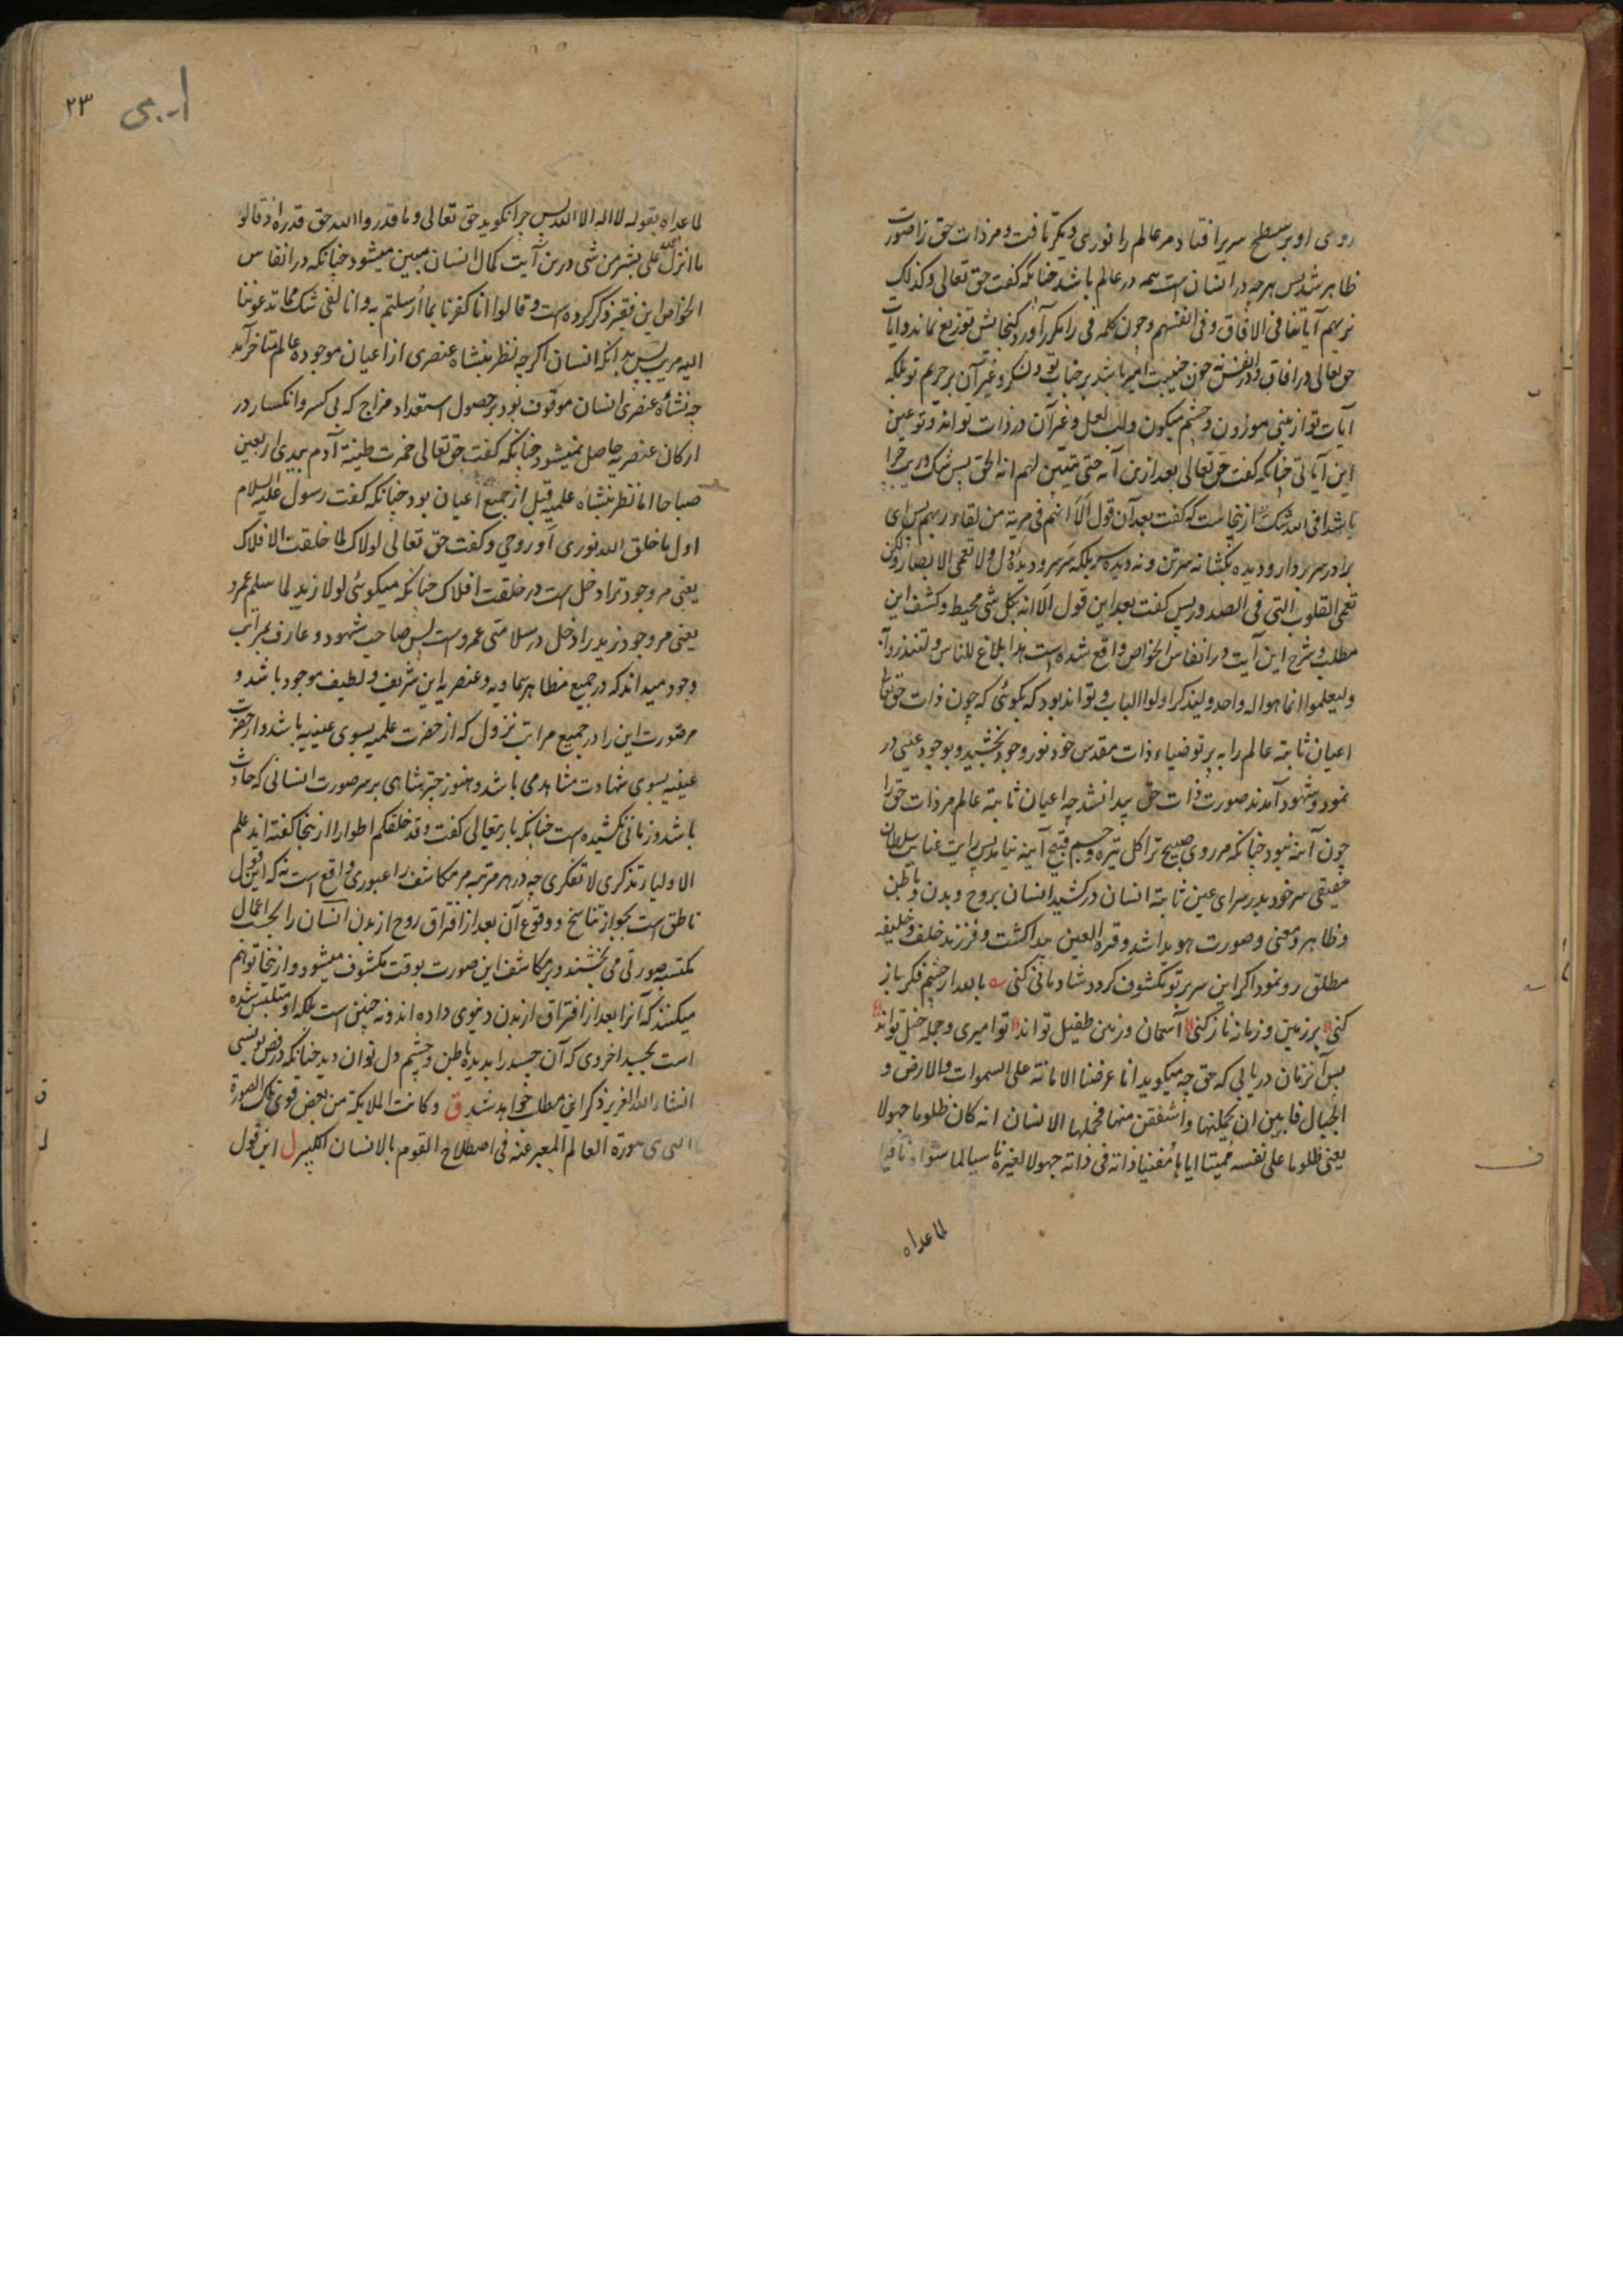 روی او بر سطح سریر افتاد مر عالم را نوری دیگر تافت و مر ذات حق را صورت
ظاهر شد پس هرچه در انسان است همه در عالم باشد چنانکه گفت حق تعالی وکذلک
نریهم آیاتنا فی الافاق وفی انفسهم و چون کلمه فی را مکرر آورد کنجایش توزیع نماند و آیات
حق تعالی در افاق و در انفس چون خیبت امیر باشد بر جناب تو و لشکر و غیر آن بر حریم تو بلکه
آیات تو از بینی موزون و چشم میکون و لب لعل و غیر آن در ذات تو اند و تو عین
این آیاتی چنانکه گفت حق تعالی بعد ازین آیه حتی یتبین لهم انه الحق پس شک و ریب چرا
باشد افی الله شک ازینجاست که گفت بعد آن قول اَلَا انهم فی مریة من لقاء ربهم پس ای
برادر سر بردار و دیده بکشا نه سر تن و نه دیده سر بلکه سَر سِر و دیدهٔ دل و لا تعمی الابصار ولکن
تعمی القلوب التی فی الصدور پس گفت بعد این قول اَلَا انه بکل شی محیط و کشف این
مطلب و شرح این آیت در انفاس الخواص واقع شده است هذا بلاغ للناس ولینذروا به
ولیعلموا انما هو اله واحد ولیذکر اولوا الباب و تواند بود که بگوئی که چون ذات حق تعالی
اعیان ثابته عالم را به پرتو ضیاء ذات مقدس خود نور وجود بخشید و بوجود عینی در
نمود و شهود آمدند صورت ذات حق پیدا نشد چه اعیان ثابته عالم مر ذات حق را
چون آئنه نبود چنانکه مر روی صبیح ترا کل تیره و جسم قبیح آیینه نیاید پس رایت عنایت سلطان
حقیقی سر خود بدر سرای عین ثابته انسان در کشید انسان بروح و بدن و باطن
و ظاهر و معنی و صورت هویدا شد و قرة العین پیدا کشت و فرزند خلف و خلیفه
مطلق رو نمود اکر این سر بر تو مکشوف کردد شادمانی کنی بابعد از چشم فکر باز
کنی بر زمین و زمانه ناز کنی آسمان و زمین طفیل تو اند تو امیری و جمله خیل تو اند
پس آنزمان دریابی که حق چه میکوید انا عرضنا الامانة علی السموات والارض و
الجبال فابین ان یحملنها واشفقن منها فحملها الانسان انه کان ظلوما جهولا
یعنی ظلوما علی نفسه ممیتا ایاها مُفنیا ذاته فی ذاته جهولا لغیره ناسیا لما سواه نافیا
لماعداه
۲۳
لماعداه بقوله لا اله الا الله پس چرا نکوید حق تعالی وما قدروا الله حق قدره اذ قالوا
ما انزل الله علی بشر من شی درین آیت کمال انسان مبین میشود چنانکه در انفاس
الخواص این فقیر ذکر کرده است و قالوا انا کفرنا بما اُرسلتم به وانا لفی شک مما تدعوننا
الیه مریب پس بدانکه انسان اکرچه نظر بنشاه عنصری از اعیان موجوده عالم متاخر آمد
چه نشأه عنصری انسان موقوف بود بر حصول استعداد مزاج که بی کسر و انکسار در
ارکان عنصریه حاصل نمیشود چنانکه گفت حق تعالی خمرت طینة آدم بیدی اربعین
صباحا اما نظر بنشاه علمیه قبل از جمیع اعیان بود چنانکه گفت رسول علیه السلام
اول ما خلق الله نوری او روحی و گفت حق تعالی لولاک لما خلقت الافلاک
یعنی مر وجود ترا دخل است در خلقت افلاک چنانکه میکوئی لولا زید لما سلم عمرو
یعنی مر وجود زید را دخل در سلامتی عمرو است پس صاحب شهود و عارف مراتب
وجود میداند که در جمیع مظاهر سماویه و عنصریه این شریف و لطیف موجود باشد و
مر صورت این را در جمیع مراتب نزول که از حضرت علمیه بسوی عینیه باشد و از حضرت
عینیه بسوی شهادت مشاهد می باشد و هنوز چتر شاهی بر سر صورت انسانی که حادث
باشد و زمانی نکشیده است چنانکه باریتعالی گفت وقد خلقکم اطوارا ازینجا گفته اند علم
الاولیاء تذکری لا تفکری چه در هر مرتبه مر مکاشف را عبوری واقع است نه که این قول
ناطق است بجواز تناسخ و وقوع آن بعد از افتراق روح از بدن انسان را بحسب اعمال
مکتسبه صورتی می بخشند و بر مکاشف این صورت بوقت مکشوف میشود و از ینجا توهم
میکنند که آنرا بعد از افتراق از بدن دنیوی داده اند و نه چنین است بلکه او متلبس شده
است بجسد اخروی که آن جسد را بدیده باطن و چشم دل توان دید چنانکه در فص یونسی
انشاء الله العزیز ذکر این مطلب خواهد شد ق وکانت الملایکة من بعض قوی تلک الصورة
التی هی صورة العالم المعبر عنه فی اصطلاح القوم بالانسان الکبیر ل این قول